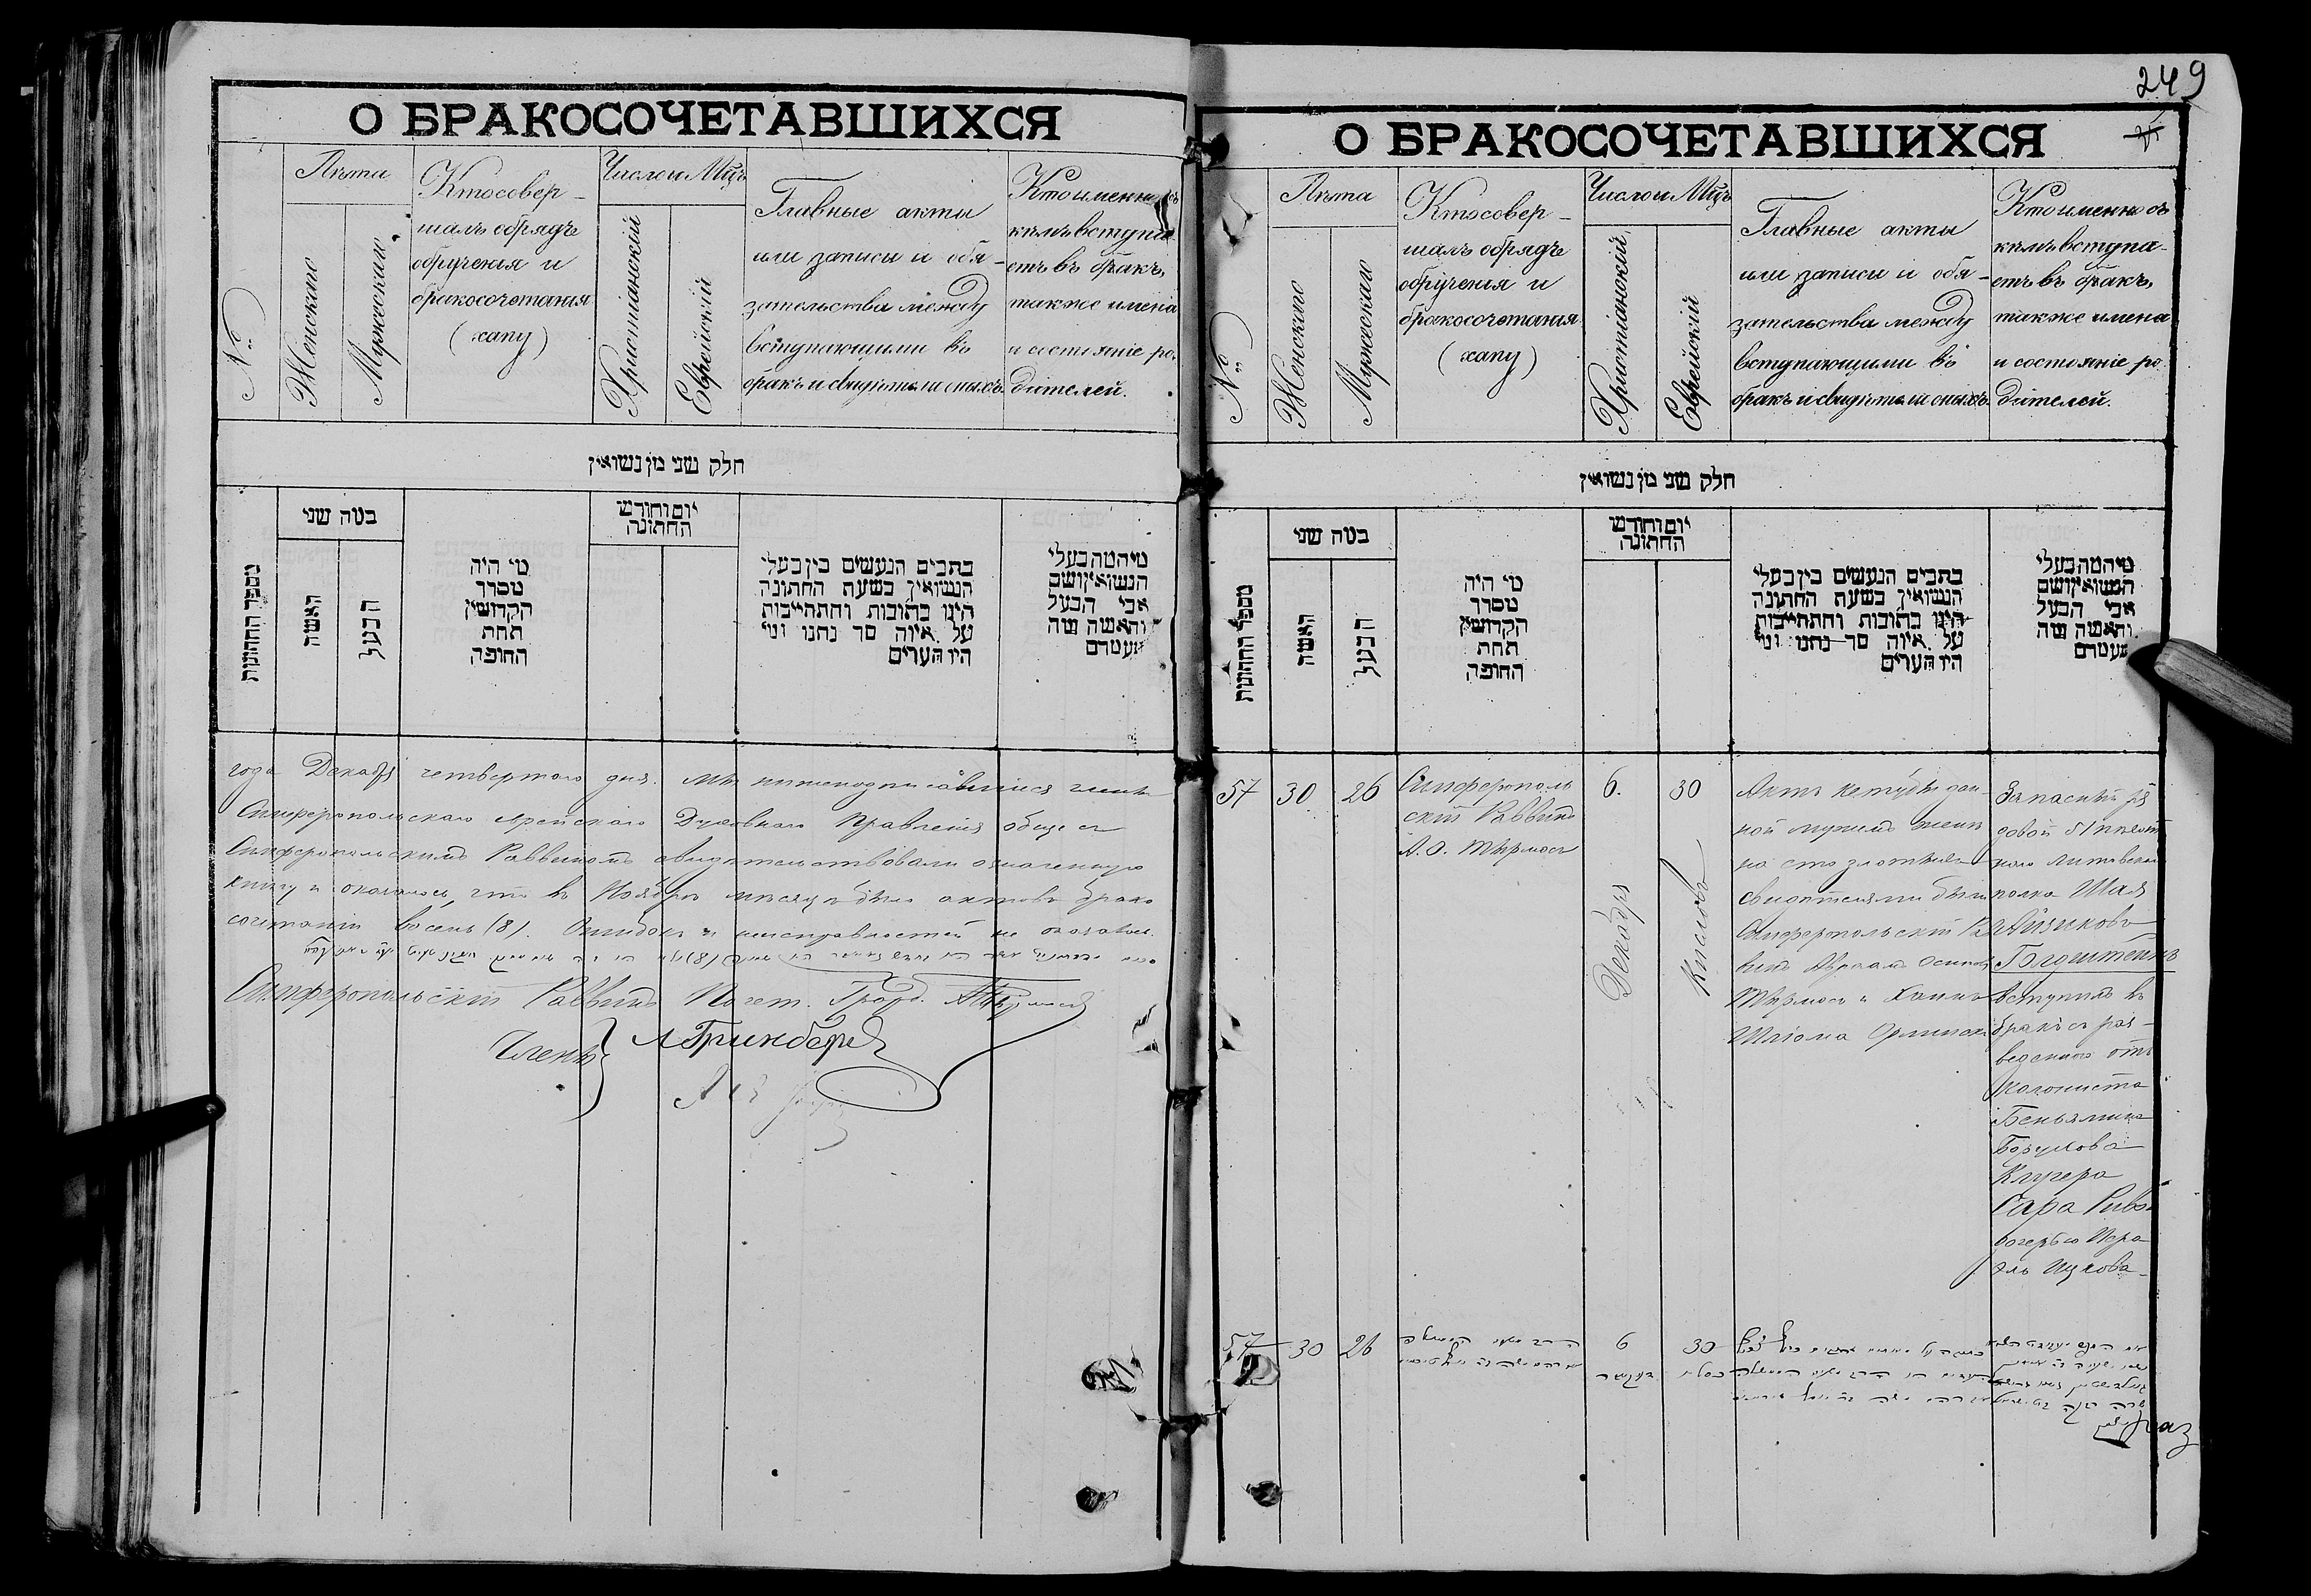 О БРАКОСОЧЕТАВШИХСЯ
№
Лѣта
Женскаго
Мужескаго
Кто совер-
шалъ обрядъ
обрученiя и
бракосочетанiя
(хапу)
Число и Мцъ
Христiанскiй
Еврейскiй
Главные акты
или записи и обя-
зательства между
вступающими въ
бракъ и свидѣтели оныхъ
Кто именно съ
кѣмъ вступа
етъ въ бракъ,
также имена
и состоянiе ро-
дителей.
חלק שני מן נשואין
מספר החתונות
כמה שני
האשה
הבעל
מי היה
מסדר
הקדושין
תחת
החופה
יום וחודש
החתונה
כתבים הנעשים בין בעלי
הנשואין בשעת החתונה
היינו כתובות והתחייבות
על איזה סך נתנו ומי
היו העדים
מי המה בעלי
הנשואין ושם
אבי הבעל
והאשה ומה
מעמדם
года Декабря четвертаго дня. Мы нижеподписавшiеся члены
Симферопольскаго еврейскаго Духовнаго Правленiя обще съ
Симферопольскимъ Раввиномъ свидѣтельствовали означенную
книгу и оказалось, что въ Ноябрѣ мѣсяцѣ было актовъ брако
сочетанiя восемь (8). Ошибокъ и неисправностей не оказалось.
Симферопольскiй Раввинъ Почет. Гражд. А Тырмосъ
Члены
Л Гринберг
249
О БРАКОСОЧЕТАВШИХСЯ
№
Лѣта
Женскаго
Мужескаго
Кто совер-
шалъ обрядъ
обрученiя и
бракосочетанiя
(хапу)
Число и Мцъ
Христiанскiй
Еврейскiй
Главные акты
или записи и обя-
зательства между
вступающими въ
бракъ и свидѣтели оныхъ
Кто именно съ
кѣмъ вступа-
етъ въ бракъ,
также имена
и состоянiе ро
дителей.
חלק שני מן נשואין
מספר החתונות
כמה שני
האשה
הבעל
מי היה
מסדר
הקדושין
תחת
החופה
יום וחודש
החתונה
כתבים הנעשים בין בעלי
הנשואין בשעת החתונה
היינו כתובות והתחייבות
על איזה סך נתנו ומי
היו העדים
מי המה בעלי
הנשואין ושם
אבי הבעל
והאשה ומה
מעמדם
57
30
26
Симферополь
скiй Раввинъ
А. О. Тырмосъ
6.
Декабря
30
Кислевъ
Актъ кетубы дан-
ной мужемъ женѣ
на сто злотыхъ
свидѣтелями были
Симферопольскiй Ра
винъ Абрамъ Осиповъ
Тырмосъ и Хаимъ
Шлiома Орлинскiй
Запасный ря
довой 51 пѣхот
наго Литовскаго
полка Шая
Айзиковъ
Голдштейнъ
вступилъ въ
бракъ съ раз-
веденною отъ
колониста
Беньямина
Борухова
Клугера
Сара Ривка
дочерью Изра
эль Ицкова
57
30
26
6
30